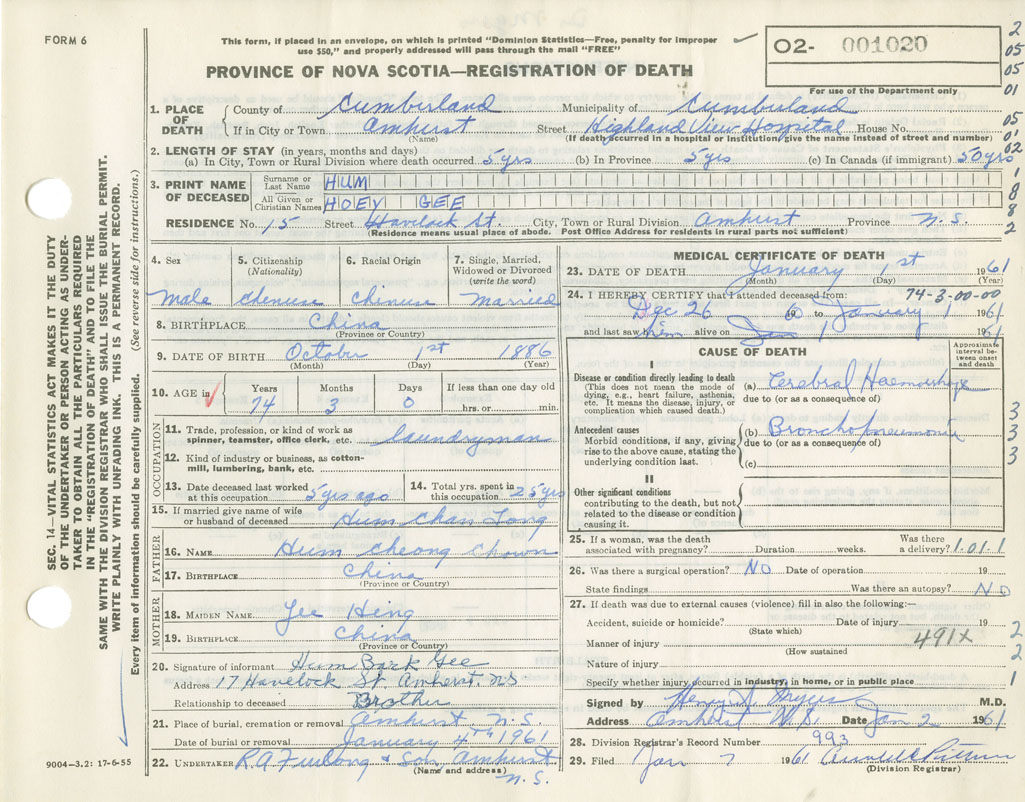 FORM 6
This form, if placed in an envelope, on which is printed "Dominion Statistics—Free, penalty for improper
use $50," and properly addressed will pass through the mail "FREE"
PROVINCE OF NOVA SCOTIA—REGISTRATION OF DEATH
02- 001020
For use of the Department only
2
05
05
01
05
01
02
1
8
8
2
1. PLACE OF DEATH County of Cumberland Municipality of Cumberland
If in City or Town Amhurst Street Highland View Hospital House No.
(Name) (If death occurred in a hospital or institution, give the name instead of street and number)
2. LENGTH OF STAY (in years, months and days)
(a) In City, Town or Rural Division where death occurred 5 yrs (b) In Province 5 yrs (c) In Canada (if immigrant) 50 yrs
3. PRINT NAME OF DECEASED Surname or Last Name HUM
All Given or Christian Names HOEY GEE
RESIDENCE No. 15 Street Havelock St. City, Town or Rural Division Amhurst Province N.S.
(Residence means usual place of abode. Post Office Address for residents in rural parts not sufficient)
4. Sex 5. Citizenship (Nationality) 6. Racial Origin 7. Single, Married, Widowed or Divorced (write the word)
Male Chinese Chinese Married
8. BIRTHPLACE China
(Province or Country)
9. DATE OF BIRTH October 1st 1886
(Month) (Day) (Year)
10. AGE in Years Months Days If less than one day old
74 3 0 hrs. or min.
OCCUPATION
11. Trade, profession, or kind of work as spinner, teamster, office clerk, etc. laundryman
12. Kind of industry or business, as cotton-mill, lumbering, bank, etc.
13. Date deceased last worked at this occupation 5 yrs ago 14. Total yrs. spent in this occupation 25 yrs
15. If married give name of wife or husband of deceased Hum Chan Tong
FATHER
16. NAME Hum Cheong Chown
17. BIRTHPLACE China
(Province or Country)
MOTHER
18. MAIDEN NAME Yee Hing
19. BIRTHPLACE China
(Province or Country)
20. Signature of informant Hum Bark Gee
Address 17 Havelock St. Amherst. NS
Relationship to deceased Brother
21. Place of burial, cremation or removal Amhurst, N.S.
Date of burial or removal January 4th 1961
22. UNDERTAKER R.A. Furlong & Son, Amhurst
(Name and address) N.S.
MEDICAL CERTIFICATE OF DEATH
23. DATE OF DEATH January 1st 1961
(Month) (Day) (Year)
24. I HEREBY CERTIFY that I attended deceased from: 74-3-00-00
Dec 26 1960 to January 1 1961
and last saw him alive on Jan 1 1961
CAUSE OF DEATH
Approximate interval between onset and death
I
Disease or condition directly leading to death (a) Cerebral Haemorrhage
(This does not mean the mode of dying, e.g., heart failure, asthenia, etc. It means the disease, injury, or complication which caused death.)
due to (or as a consequence of)
Antecedent causes (b) Bronchopneumonia
Morbid conditions, if any, giving rise to the above cause, stating the underlying condition last.
due to (or as a consequence of)
(c)
3
3
3
3
II
Other significant conditions
contributing to the death, but not related to the disease or condition causing it.
25. If a woman, was the death associated with pregnancy? Duration weeks. Was there a delivery? 1.01.1
26. Was there a surgical operation? NO Date of operation 19
State findings Was there an autopsy? NO
27. If death was due to external causes (violence) fill in also the following:—
Accident, suicide or homicide? Date of injury 19
(State which)
Manner of injury 491X
(How sustained)
Nature of injury
Specify whether injury occurred in industry, in home, or in public place
2
2
1
Signed by M.D.
Address Amherst N.S. Date Jan 2 1961
28. Division Registrar's Record Number 993
29. Filed Jan 7 1961
(Division Registrar)
SEC. 14—VITAL STATISTICS ACT MAKES IT THE DUTY
OF THE UNDERTAKER OR PERSON ACTING AS UNDER-
TAKER TO OBTAIN ALL THE PARTICULARS REQUIRED
IN THE "REGISTRATION OF DEATH" AND TO FILE THE
SAME WITH THE DIVISION REGISTRAR WHO SHALL ISSUE THE BURIAL PERMIT.
WRITE PLAINLY WITH UNFADING INK. THIS IS A PERMANENT RECORD.
Every item of information should be carefully supplied. (See reverse side for instructions.)
9004-3.2: 17-6-55